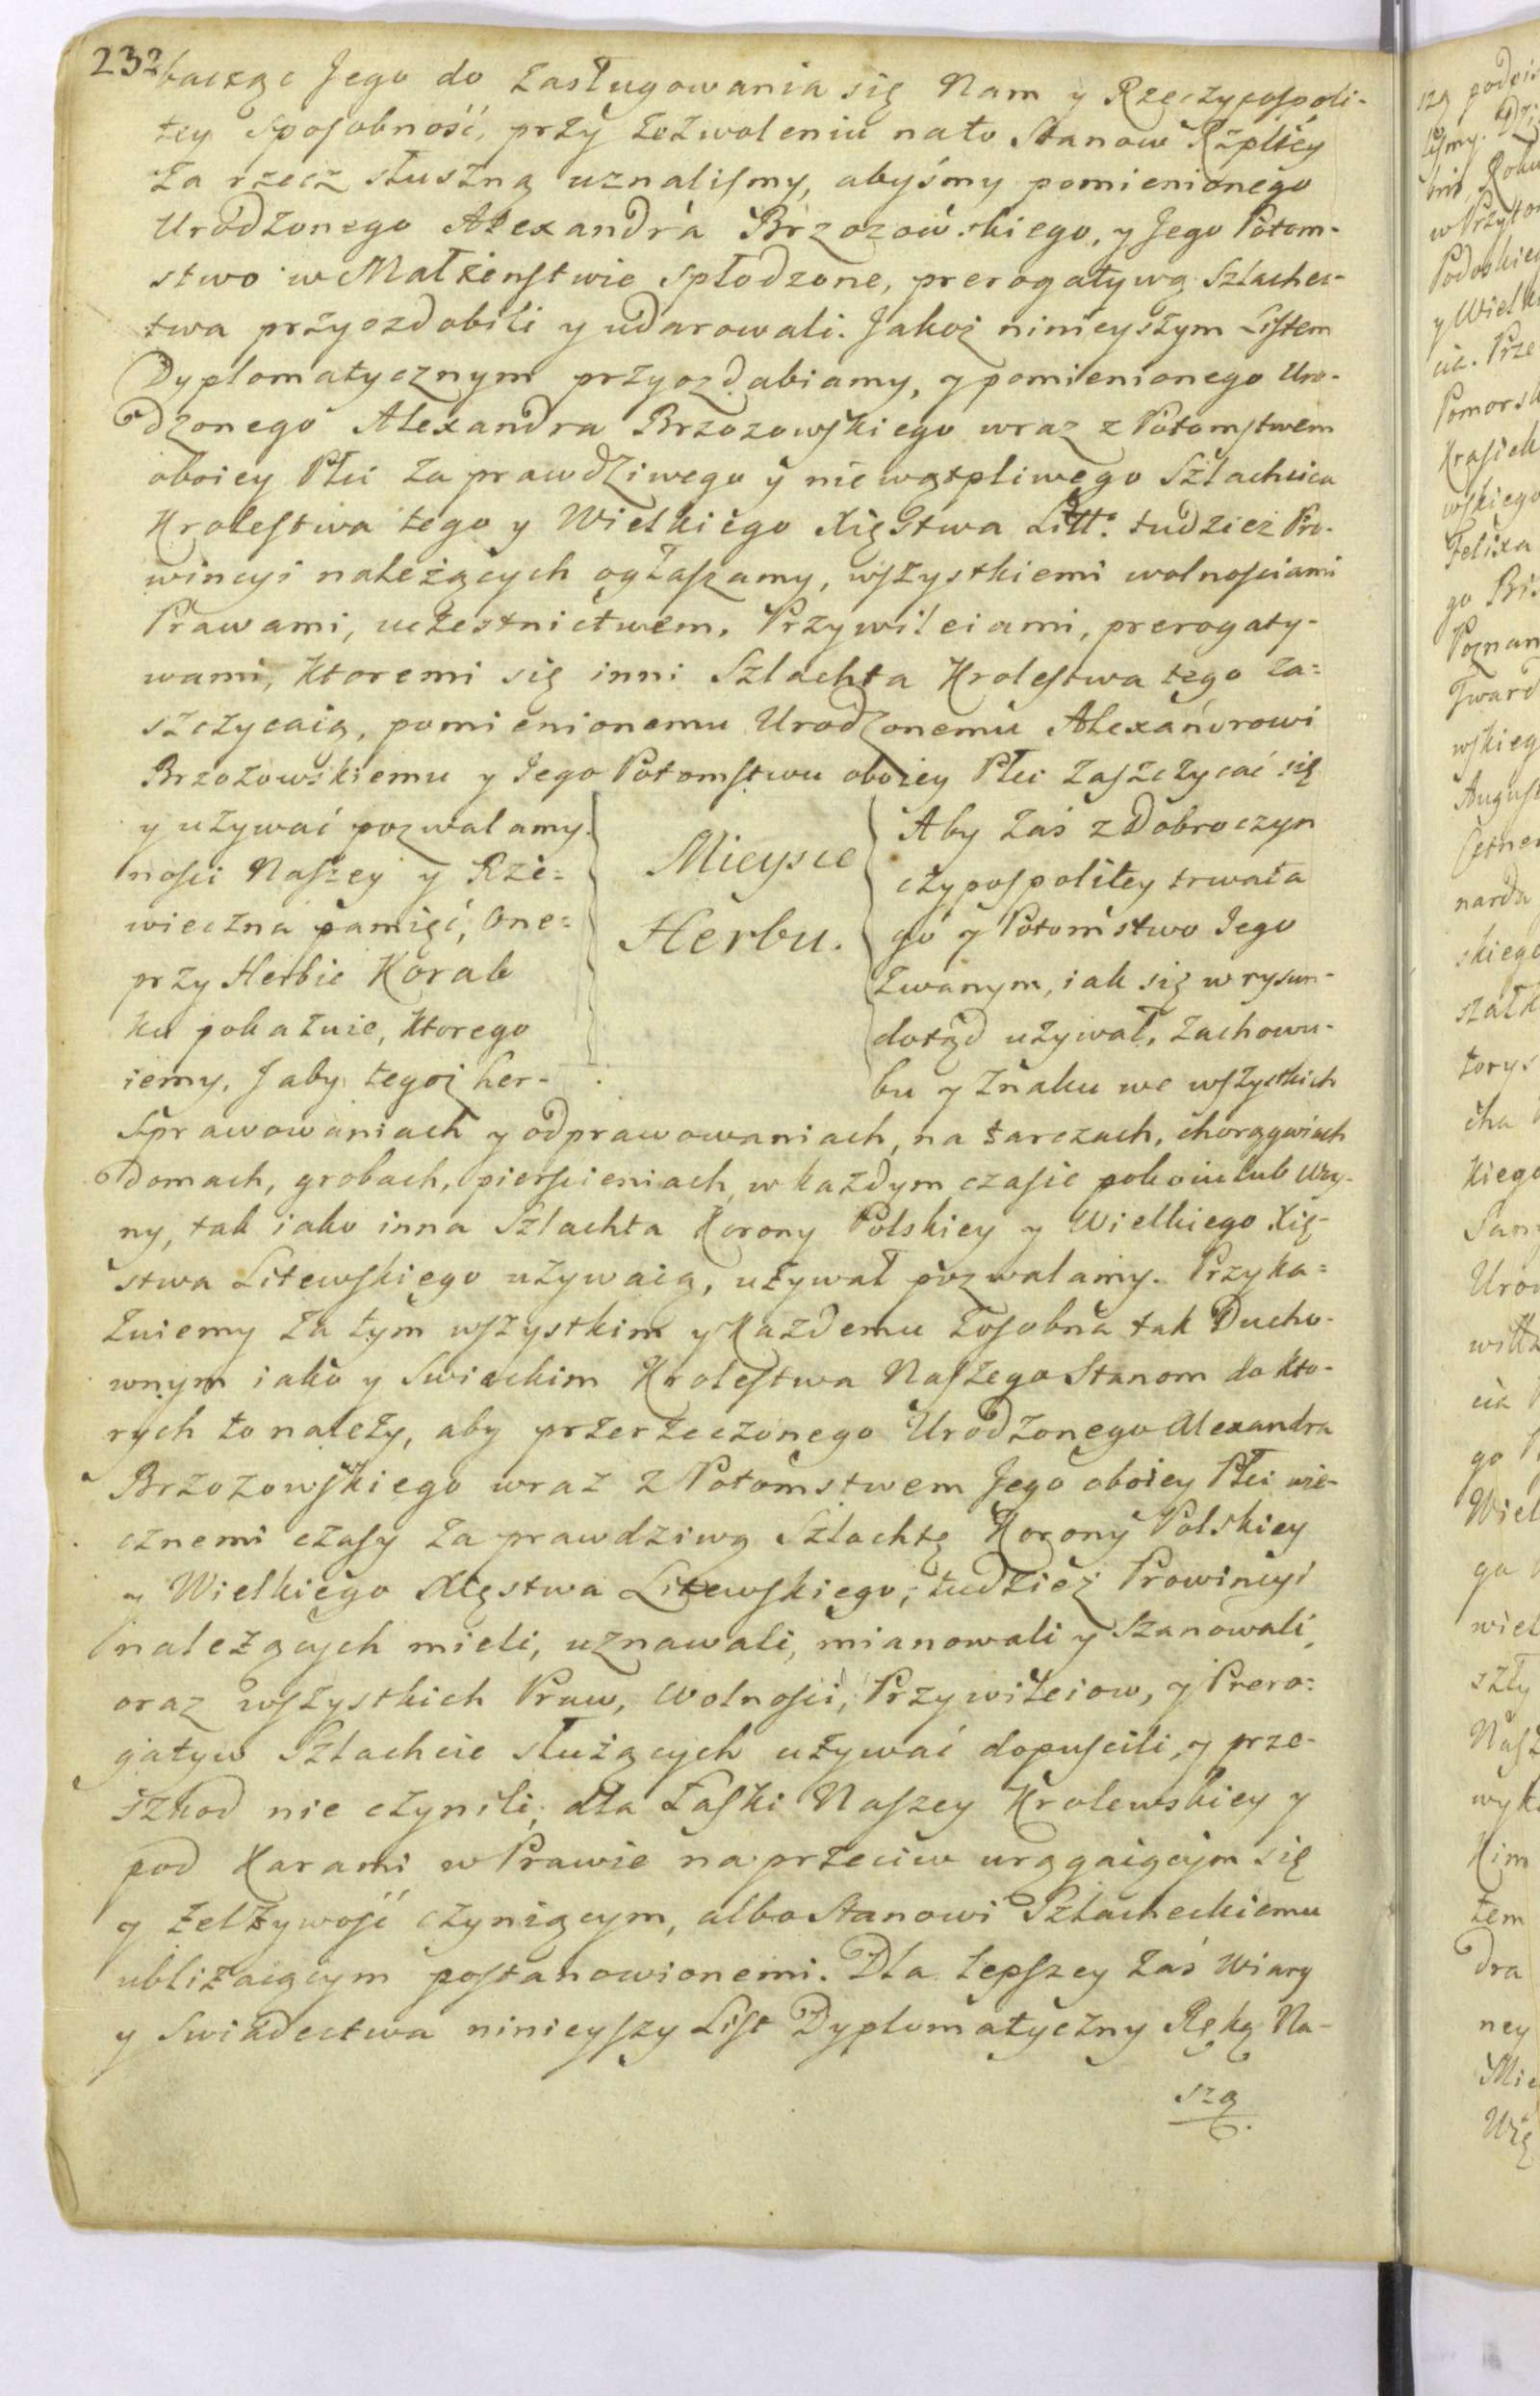 232
bacząc Jego do zasługowania się Nam y Rzeczypospoli-
tey sposobność, przy zezwoleniu na to Stanow Rzpltey
za rzecz słuszną uznalismy, abyśmy pomienionego
Urodzonego Alexandra Brzozowskiego, y Jego Potom-
stwo w Małżenstwie spłodzone, prerogatywą Szlachec-
twa przyozdobili y udarowali. Jakoż ninieyszym Listem
Dyplomatycznym przyozdabiamy, y pomienionego Uro-
dzonego Alexandra Brzozowskiego wraz z Potomstwem
oboiey Płci za prawdziwego y niewątpliwego Szlachcica
Krolestwa tego y Wielkiego Xięstwa Litt: tudziez Pro-
wincyi należących ogłaszamy, wszystkiemi wolnosciami
Prawami, uczestnictwem, Przywileiami, prerogaty-
wami, Ktoremi się inni Szlachta Krolestwa tego za=
szczycaią, pomienionemu Urodzonemu Alexandrowi
Brzozowskiemu y Jego Potomstwu oboiey Płci zaszczycać się
y używać pozwalamy. Aby zaś z Dobroczyn
nosci Naszey y Rze= czypospolitey trwała
wieczna pamięć, One= go y Potomstwo Jego
przy Herbie Korab zwanym, iak się w rysun-
ku pokazuie, Ktorego dotąd używał, zachowu-
iemy, J aby tegoż her- bu y Znaku we wszystkich
Mieysce
Herbu.
Sprawowaniach y odprawowaniach, na tarczach, chorągwiach
domach, grobach, pierscieniach, w każdym czasie pokoiu lub Woy-
ny, tak iako inna Szlachta Korony Polskiey y Wielkiego Xię-
stwa Litewskiego używaią, używał pozwalamy. Przyka=
zuiemy za tym wszystkim y Każdemu zosobna tak Ducho-
wnym iako y Swieckim Krolestwa Naszego Stanom do kto-
rych to należy, aby przerzeczonego Urodzonego Alexandra
Brzozowskiego wraz z Potomstwem Jego oboiey Płci wie-
cznemi czasy za prawdziwą Szlachtę Korony Polskiey
y Wielkiego Xięstwa Litewskiego, tudzież Prowincyi
należących mieli, uznawali, mianowali y Szanowali,
oraz wszystkich Praw, Wolnosci, Przywileiow, y Prero=
gatyw Szlachcie służących używać dopuscili, y prze-
szkod nie czynili, dla Łaski Naszey Krolewskiey y
pod Karami w Prawie naprzeciw urągaiącym się
y zelżywość czyniącym, albo Stanowi Szlacheckiemu
ubliżaiącym postanowionemi. Dla lepszey zaś wiary
y Swiadectwa ninieyszy List Dyplomatyczny Ręką Na-
szą